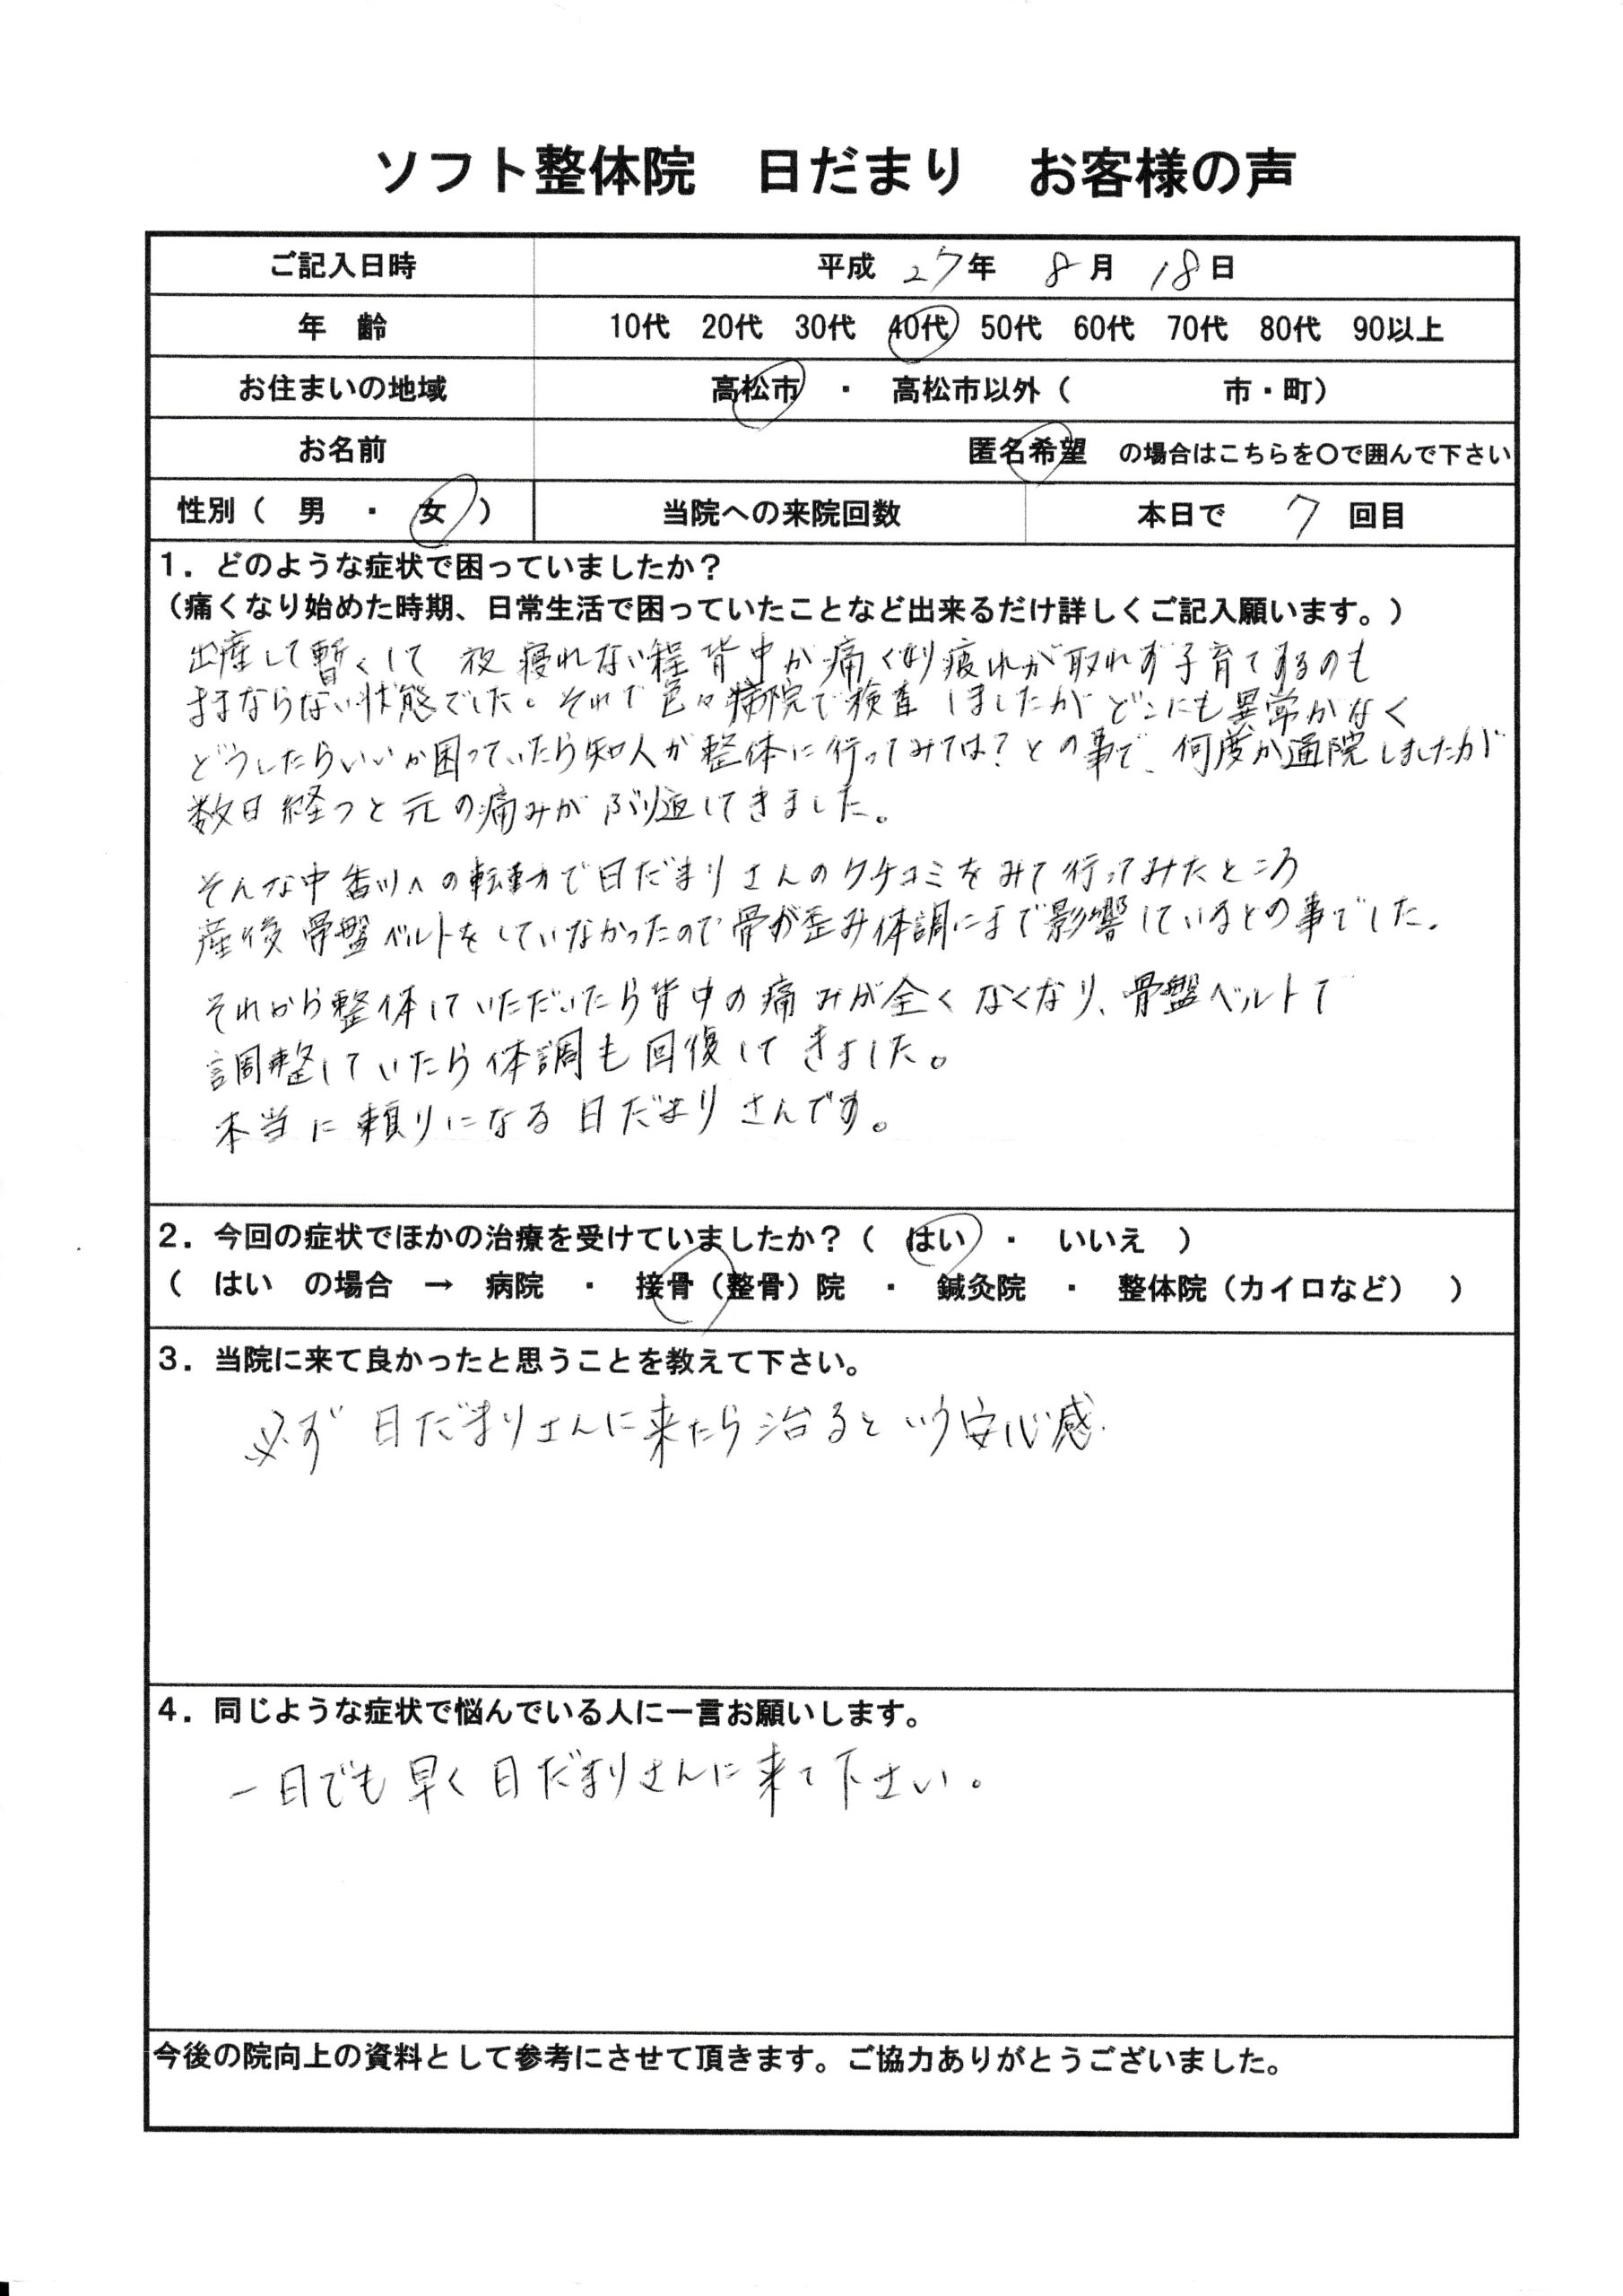 ソフト整体院　日だまり　お客様の声
ご記入日時　平成 27年 8月 18日
年　齢　10代　20代　30代　40代　50代　60代　70代　80代　90以上
お住まいの地域　高松市　・　高松市以外（　　　市・町）
お名前　匿名希望　の場合はこちらを〇で囲んで下さい
性別（　男　・　女　）　当院への来院回数　本日で　7　回目
１．どのような症状で困っていましたか？
（痛くなり始めた時期、日常生活で困っていたことなど出来るだけ詳しくご記入願います。）
出産して暫くして 夜寝れない程背中が痛くなり疲れが取れず子育てするのも
ままならない状態でした。それで色々病院で検査しましたがどこにも異常がなく
どうしたらいいか困っていたら知人が整体に行ってみては？との事で、何度か通院しましたが
数日経つと元の痛みがぶり返してきました。
そんな中香川への転勤で日だまりさんのクチコミをみて行ってみたところ
産後骨盤ベルトをしていなかったので骨が歪み体調にまで影響しているとの事でした。
それから整体していただいたら背中の痛みが全くなくなり、骨盤ベルトで
調整していたら体調も回復してきました。
本当に頼りになる日だまりさんです。
２．今回の症状でほかの治療を受けていましたか？（　はい　・　いいえ　）
（　はい　の場合　→　病院　・　接骨（整骨）院　・　鍼灸院　・　整体院（カイロなど）　）
３．当院に来て良かったと思うことを教えて下さい。
必ず 日だまりさんに来たら治るという安心感.
４．同じような症状で悩んでいる人に一言お願いします。
一日でも早く日だまりさんに来て下さい。
今後の院向上の資料として参考にさせて頂きます。ご協力ありがとうございました。